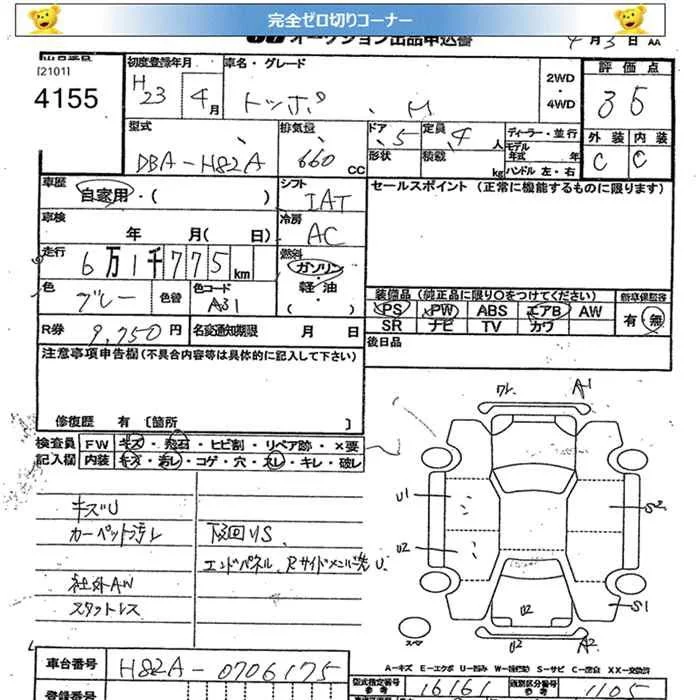 完全ゼロ切りコーナー
オークション出品申込書 4月3日 AA
[2101]
4155
初度登録年月 車名・グレード 2WD・4WD 評価点
H23 4月 トッポ . M 35
型式 排気量 ドア 5 定員 4人 ディーラー・並行 外装 内装
DBA-H82A 660CC 形状 積載 kg モデル年式 年 ハンドル 左・右 C C
車歴 自家用・( ) シフト IAT セールスポイント(正常に機能するものに限ります)
車検 年 月( 日) 冷房 AC
走行 6万1千775km 燃料 ガソリン・軽油 ( )
色 グレー 色替 色コード A31
装備品(純正品に限り○をつけてください) 新車保証書
PS PW ABS エアB AW 有・無
SR ナビ TV カワ
R券 9,750円 名変通知期限 月 日 後日品
注意事項申告欄(不具合内容等は具体的に記入して下さい)
修復歴 有 〔箇所 〕
検査員 FW キズ・飛石・ヒビ割・リペア跡・×要
記入欄 内装 キズ・汚レ・コゲ・穴・スレ・キレ・破レ
キズU
カーペット汚レ 下回りS
エンドパネル、Rサイドメンバー先U
社外AW
スタットレス
ワレ A1
U1 S2
U2
U2 S1
スペア U2 A2
A-キズ E-エクボ U-凹み W-補修跡 S-サビ C-腐食 XX-交換済
車台番号 H82A-0706175 型式指定番号 参考 16161 類別区分番号 参考 1105
登録番号